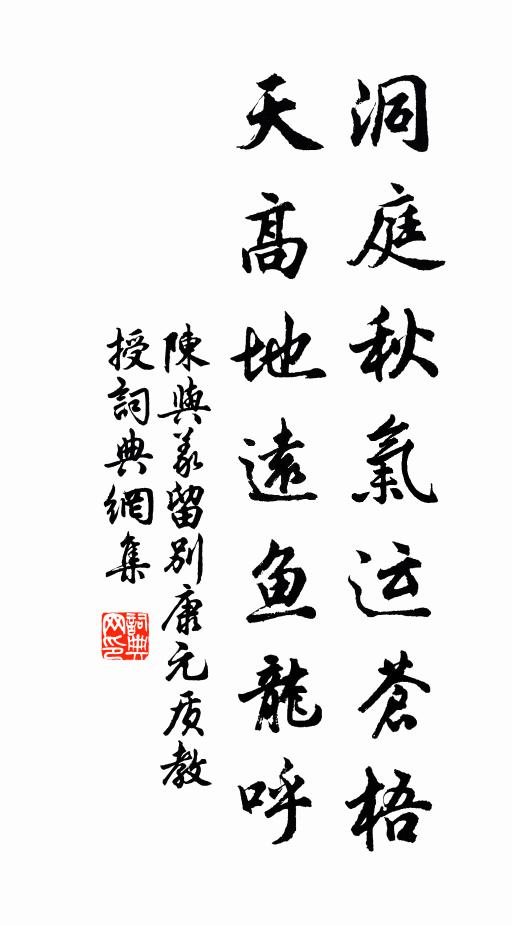 洞庭秋氣运蒼梧
天高地遠鱼龍呼
陳與義留别康元质教
授詞典網集
詞典
网印